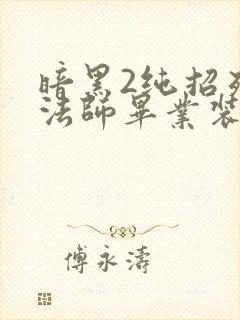 暗黑2纯招
法師畢業裝
傅永濤